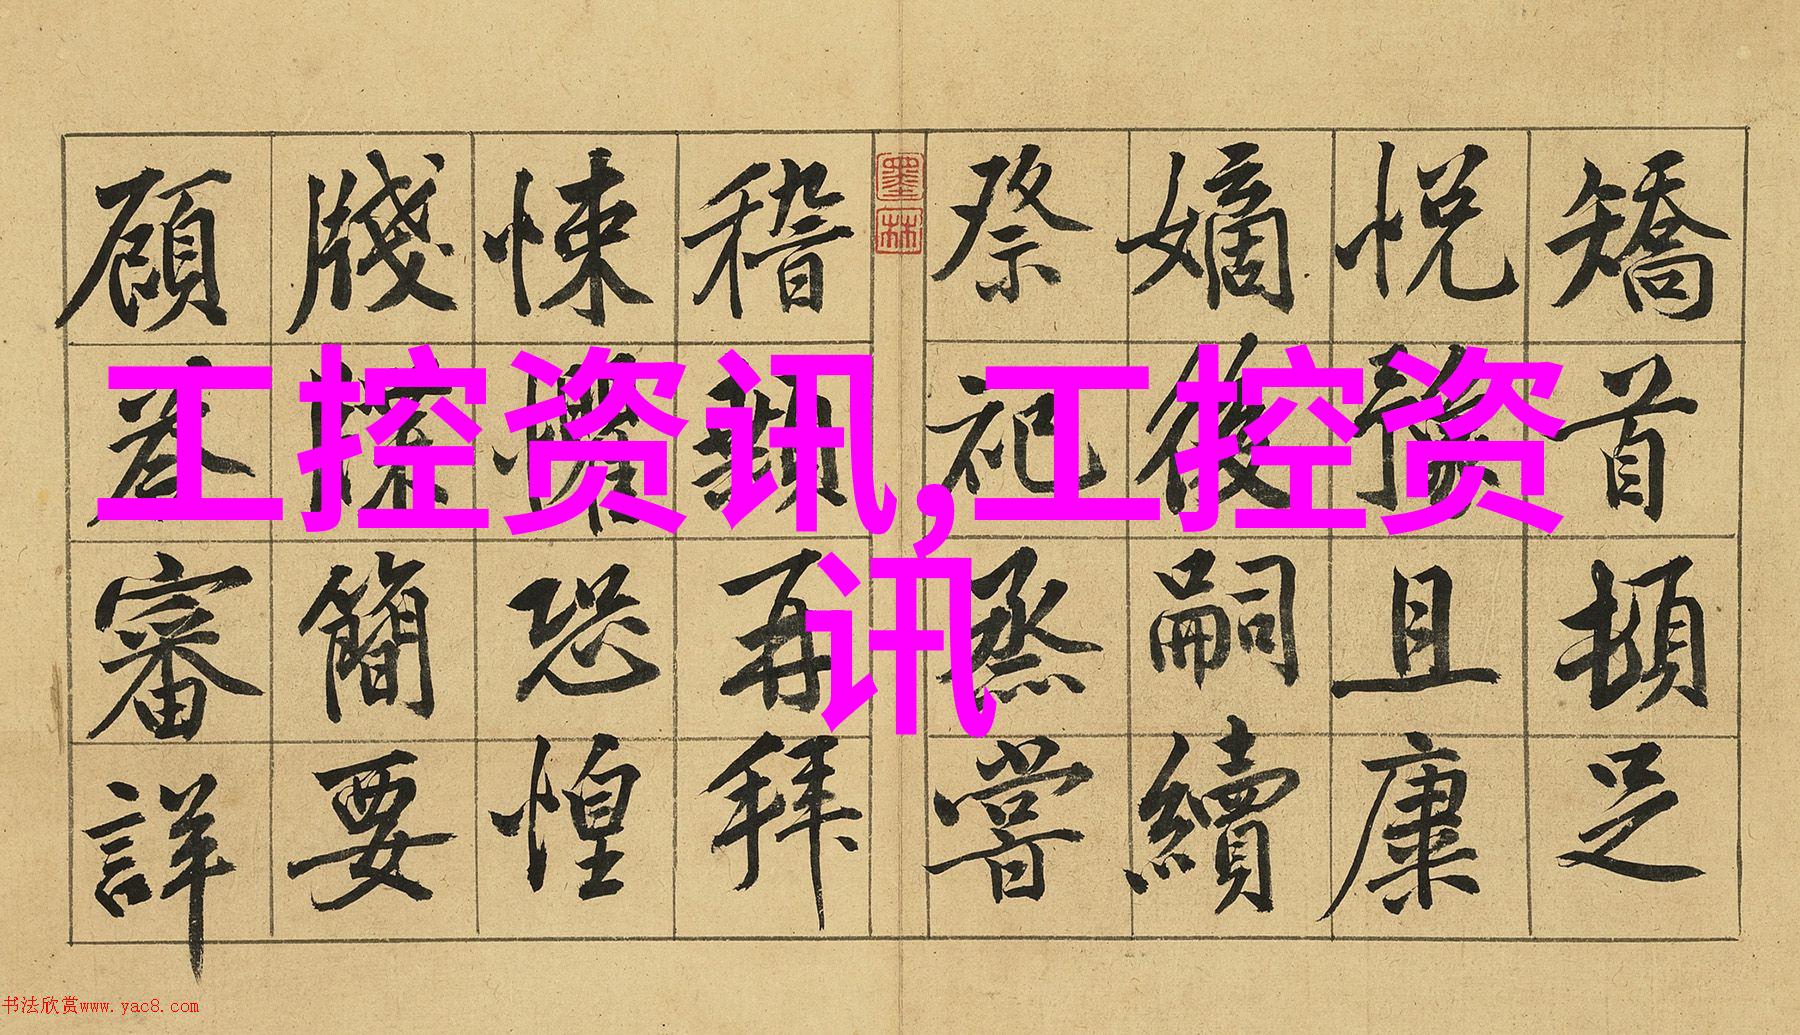 矯首頓足
悅豫且康
嫡後嗣續
祭祀烝嘗
墨林
稽顙再拜
悚懼恐惶
牋簡要
顧荅審詳
工控资讯,工控资
讯
书法欣赏www.yac8.com